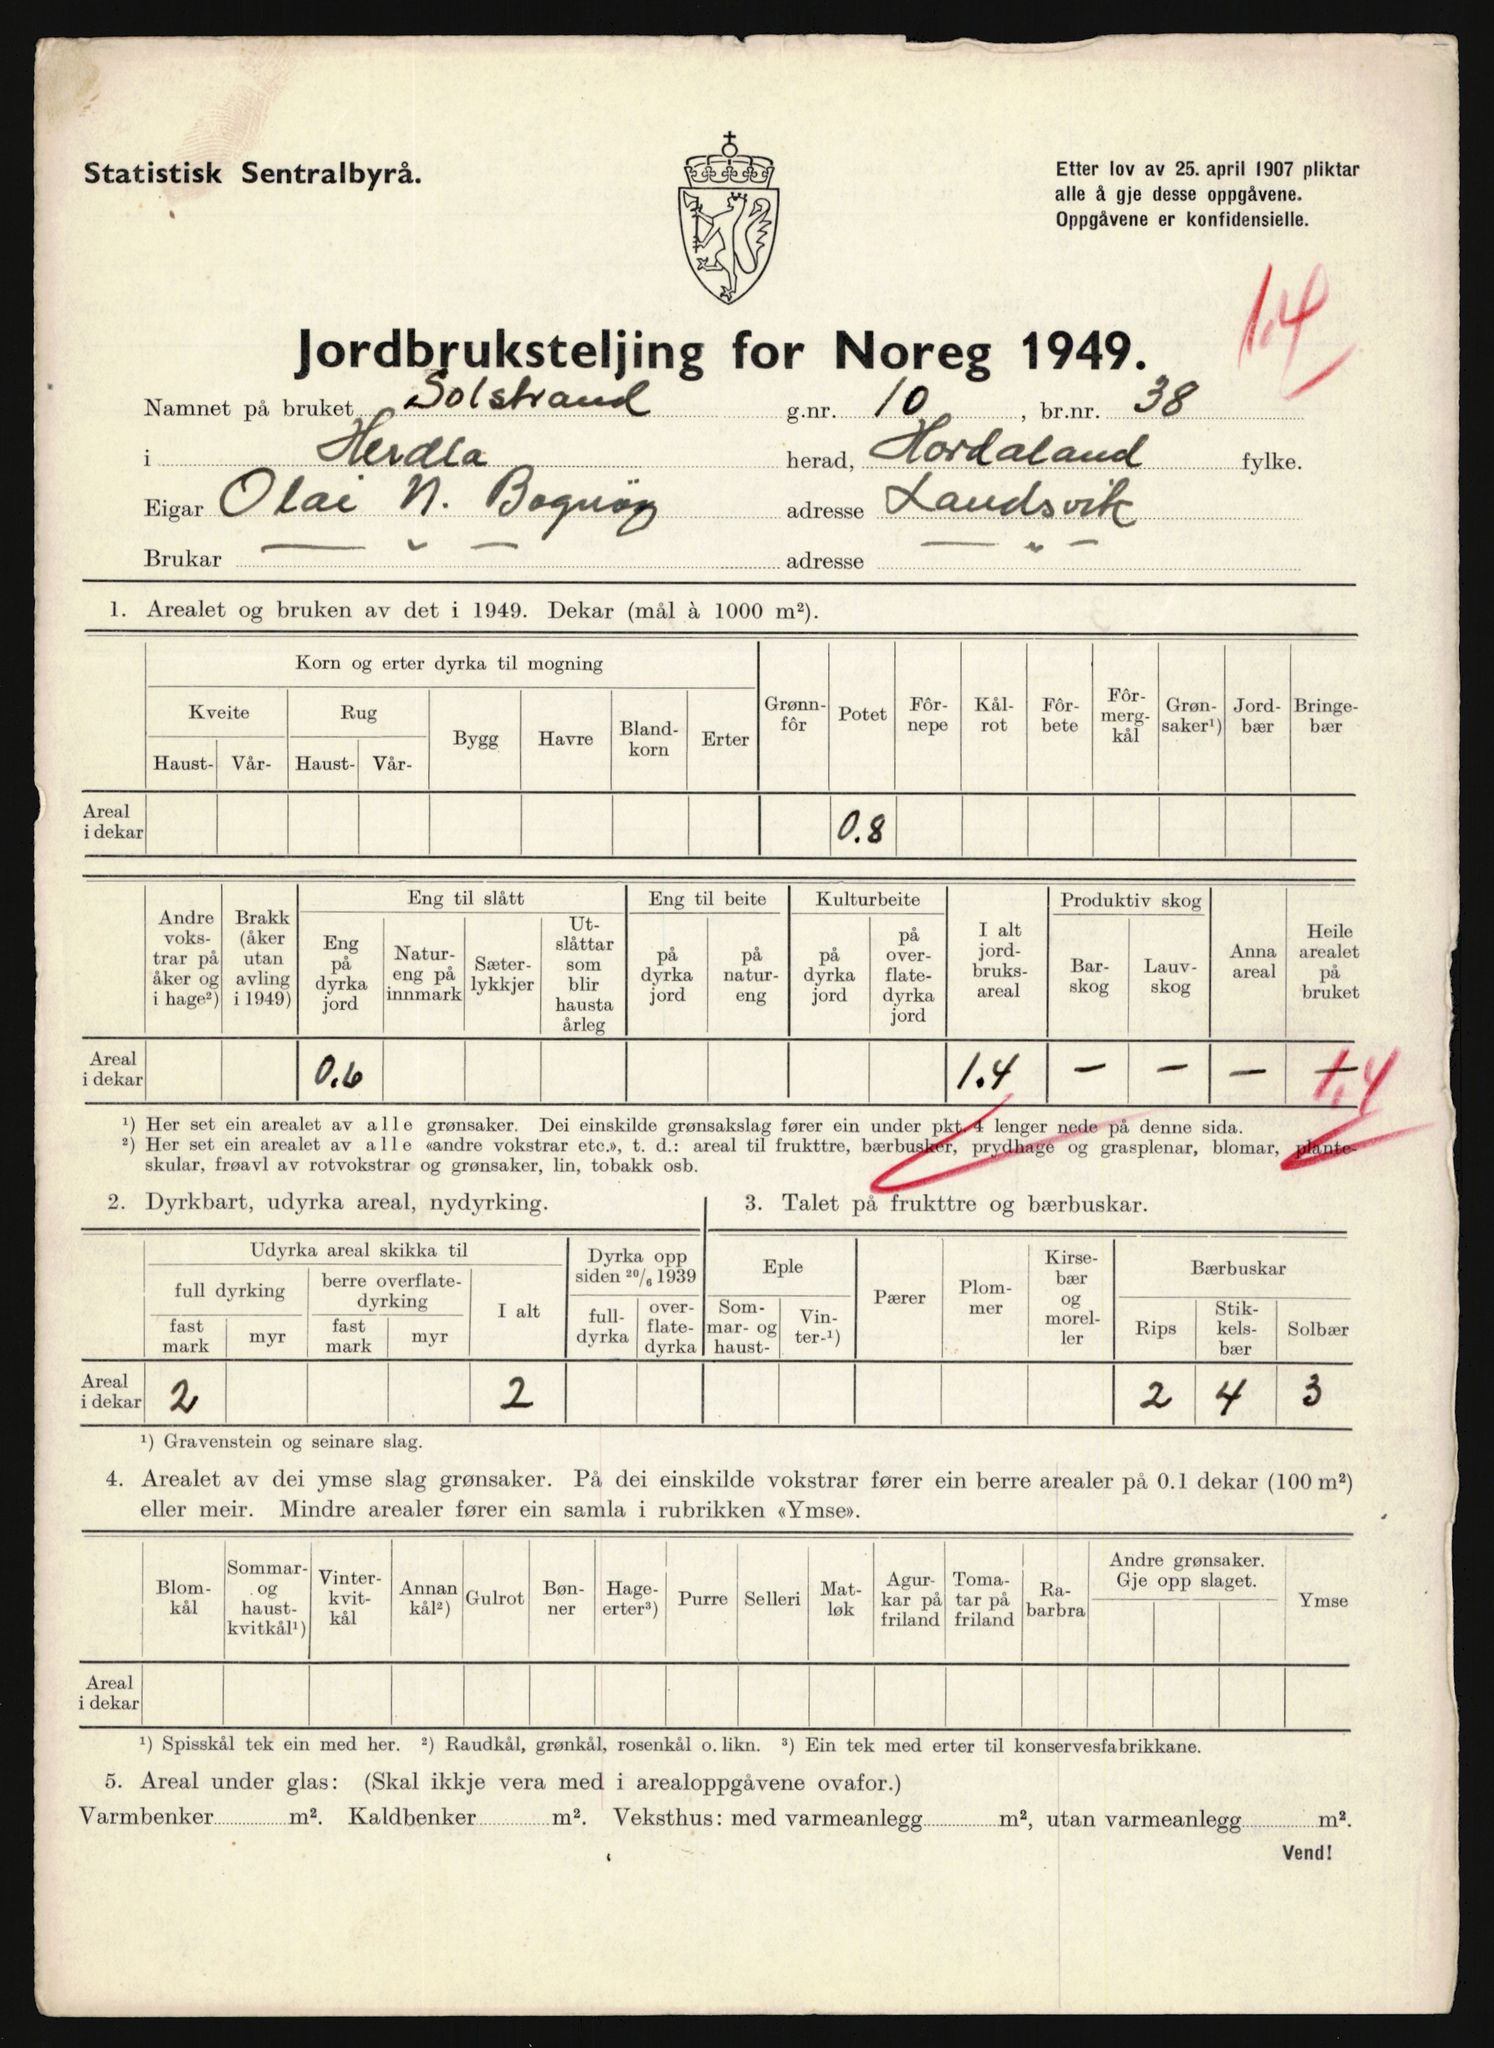 Statistisk Sentralbyrå.
Etter lov av 25. april 1907 pliktar
alle å gje desse oppgåvene.
Oppgåvene er konfidensielle.
1.4
Jordbruksteljing for Noreg 1949.
Namnet på bruket Solstrand g.nr. 10, br.nr. 38
i Herdla herad, Hordaland fylke.
Eigar Olai N. Bognøy adresse Landsvik
Brukar — " — adresse — " —
1. Arealet og bruken av det i 1949. Dekar (mål à 1000 m²).
Korn og erter dyrka til mogning
Kveite Rug Bygg Havre Bland-korn Erter Grønn-fôr Potet Fôr-nepe Kål-rot Fôr-bete Fôr-mergkål Grøn-saker¹) Jord-bær Bringe-bær
Haust- Vår- Haust- Vår-
Areal i dekar 0.8
Andre voks-trar på åker og i hage²) Brakk (åker utan avling i 1949) Eng til slått Eng til beite Kulturbeite I alt jord-bruks-areal Produktiv skog Anna areal Heile arealet på bruket
Eng på dyrka jord Natur-eng på innmark Sæter-lykkjer Ut-slåttar som blir hausta årleg på dyrka jord på natur-eng på dyrka jord på over-flate-dyrka jord Bar-skog Lauv-skog
Areal i dekar 0.6 1.4 — — — — 1.4
¹) Her set ein arealet av alle grønsaker. Dei einskilde grønsakslag fører ein under pkt. 4 lenger nede på denne sida.
²) Her set ein arealet av alle «andre vokstrar etc.», t. d.: areal til frukttre, bærbusker, prydhage og grasplenar, blomar, plante-
skular, frøavl av rotvokstrar og grønsaker, lin, tobakk osb.
2. Dyrkbart, udyrka areal, nydyrking.
Udyrka areal skikka til Dyrka opp siden 20/6 1939
full dyrking berre overflate-dyrking I alt full-dyrka over-flate-dyrka
fast mark myr fast mark myr
Areal i dekar 2 2
3. Talet på frukttre og bærbuskar.
Eple Pærer Plom-mer Kirse-bær og morel-ler Bærbuskar
Som-mar- og haust- Vin-ter-¹) Rips Stik-kels-bær Solbær
2 4 3
¹) Gravenstein og seinare slag.
4. Arealet av dei ymse slag grønsaker. På dei einskilde vokstrar fører ein berre arealer på 0.1 dekar (100 m²)
eller meir. Mindre arealer fører ein samla i rubrikken «Ymse».
Blom-kål Sommar- og haust-kvitkål¹) Vinter-kvit-kål Annan kål²) Gulrot Bøn-ner Hage-erter³) Purre Selleri Mat-løk Agur-kar på friland Toma-tar på friland Ra-barbra Andre grønsaker. Gje opp slaget. Ymse
Areal i dekar
¹) Spisskål tek ein med her. ²) Raudkål, grønkål, rosenkål o. likn. ³) Ein tek med erter til konservesfabrikkane.
5. Areal under glas: (Skal ikkje vera med i arealoppgåvene ovafor.)
Varmbenker m². Kaldbenker m². Veksthus: med varmeanlegg m², utan varmeanlegg m².
Vend!